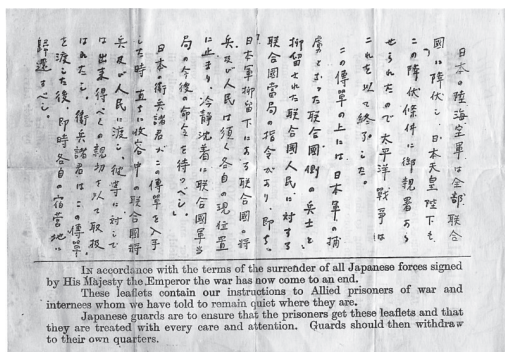 日本の陸海空軍は全部、聯合
國に降伏し、日本天皇陛下も
この降伏條件に御親署あら
せられたので太平洋戰爭は
これを以て終了した。
この傳單の上には、日本軍の捕
虜となった聯合國側の兵士と
抑留された聯合國人民に対する
聯合國當局の指令があり即ち、
日本軍抑留下にある聯合國の將
兵及び人民は須く各自の現位置
に止まり、冷靜沈着に聯合國軍当
局の今後の命令を待つべし。
日本の衛兵諸君がこの傳單を入手
した時直ちに收容中の聯合國將
兵及び人民に渡し、彼等に対して
は出来得べくの親切を以て取扱
はれたし。衛兵諸君は、この傳單
を渡した後、即時各自の宿営地に
歸還すべし。
In accordance with the terms of the surrender of all Japanese forces signed
by His Majesty the Emperor the war has now come to an end.
These leaflets contain our instructions to Allied prisoners of war and
internees whom we have told to remain quiet where they are.
Japanese guards are to ensure that the prisoners get these leaflets and that
they are treated with every care and attention. Guards should then withdraw
to their own quarters.